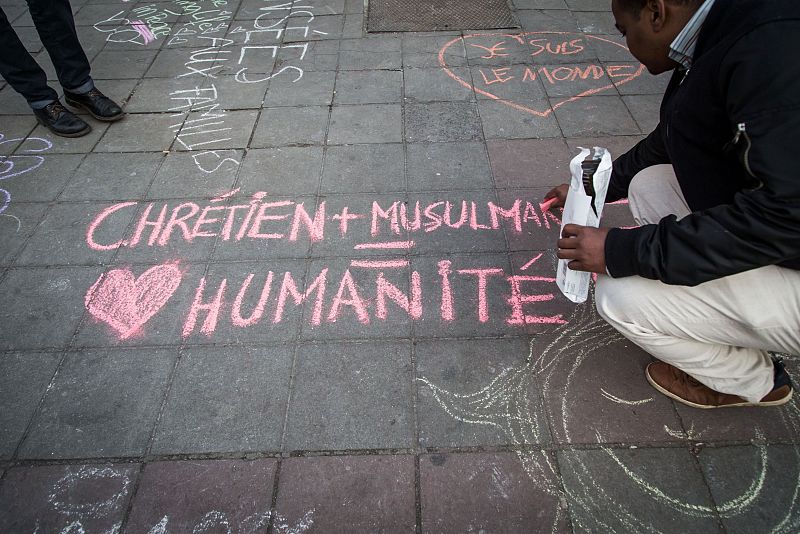 JE SUIS
LE MONDE
PENSÉES
AUX FAMILLES
CHRÉTIEN + MUSULMAN
=
HUMANITÉ